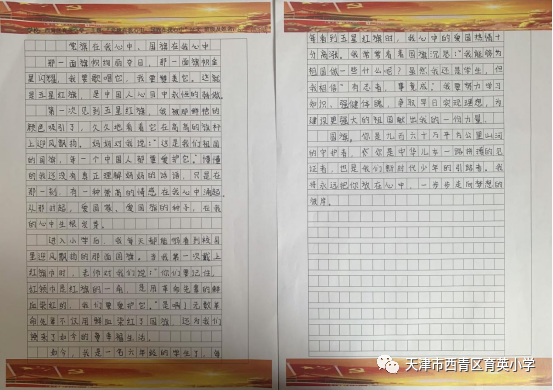 党旗在我心中，国旗在我心中
那一面旗帜绚丽夺目，那一面旗帜金
星闪耀，我要歌唱它，我要赞美它。这就
是五星红旗，是中国人心目中我们的骄傲。
第一次见到五星红旗，我被那鲜艳的
颜色吸引了，久久地看着它在高高的旗杆
上迎风飘扬。妈妈对我说：“这是我们祖国
的国旗，每一个中国人都要爱护它。”懵懂
的我还没有真正理解妈妈的话语，只是在
那一刻，有一种崇高的情感在我心中涌起。
从那时起，爱国家、爱国旗的种子，在我
的心中生根发芽。
进入小学后，我每天都能够看到校园
里迎风飘扬的那面国旗。当我第一次戴上
红领巾时，老师对我们说：“你们要记住，
红领巾是红旗的一角，是用革命先辈的鲜
血染红的，我们要爱护它。”是啊！无数革
命先辈不仅用鲜血染红了国旗，还为我们
换来了如今的幸福生活。
如今，我是一名六年级的学生了，每
每看到五星红旗时，我心中的爱国热情十
分高涨。我常常看着国旗沉思：“我能够为
祖国做一些什么呢？”虽然我还是学生，但
我相信“有志者，事竟成”，我要努力学习
知识，强健体魄，争取早日实现理想，为
建设更强大的祖国献出我的一份力量。
国旗，你是九百六十万平方公里山河
的守护者，你是中华儿女一路拼搏的见
证者，也是我们新时代少年的引路者。我
将永远把你放在心中，一步步走向梦想的
彼岸。
天津市西青区育英小学